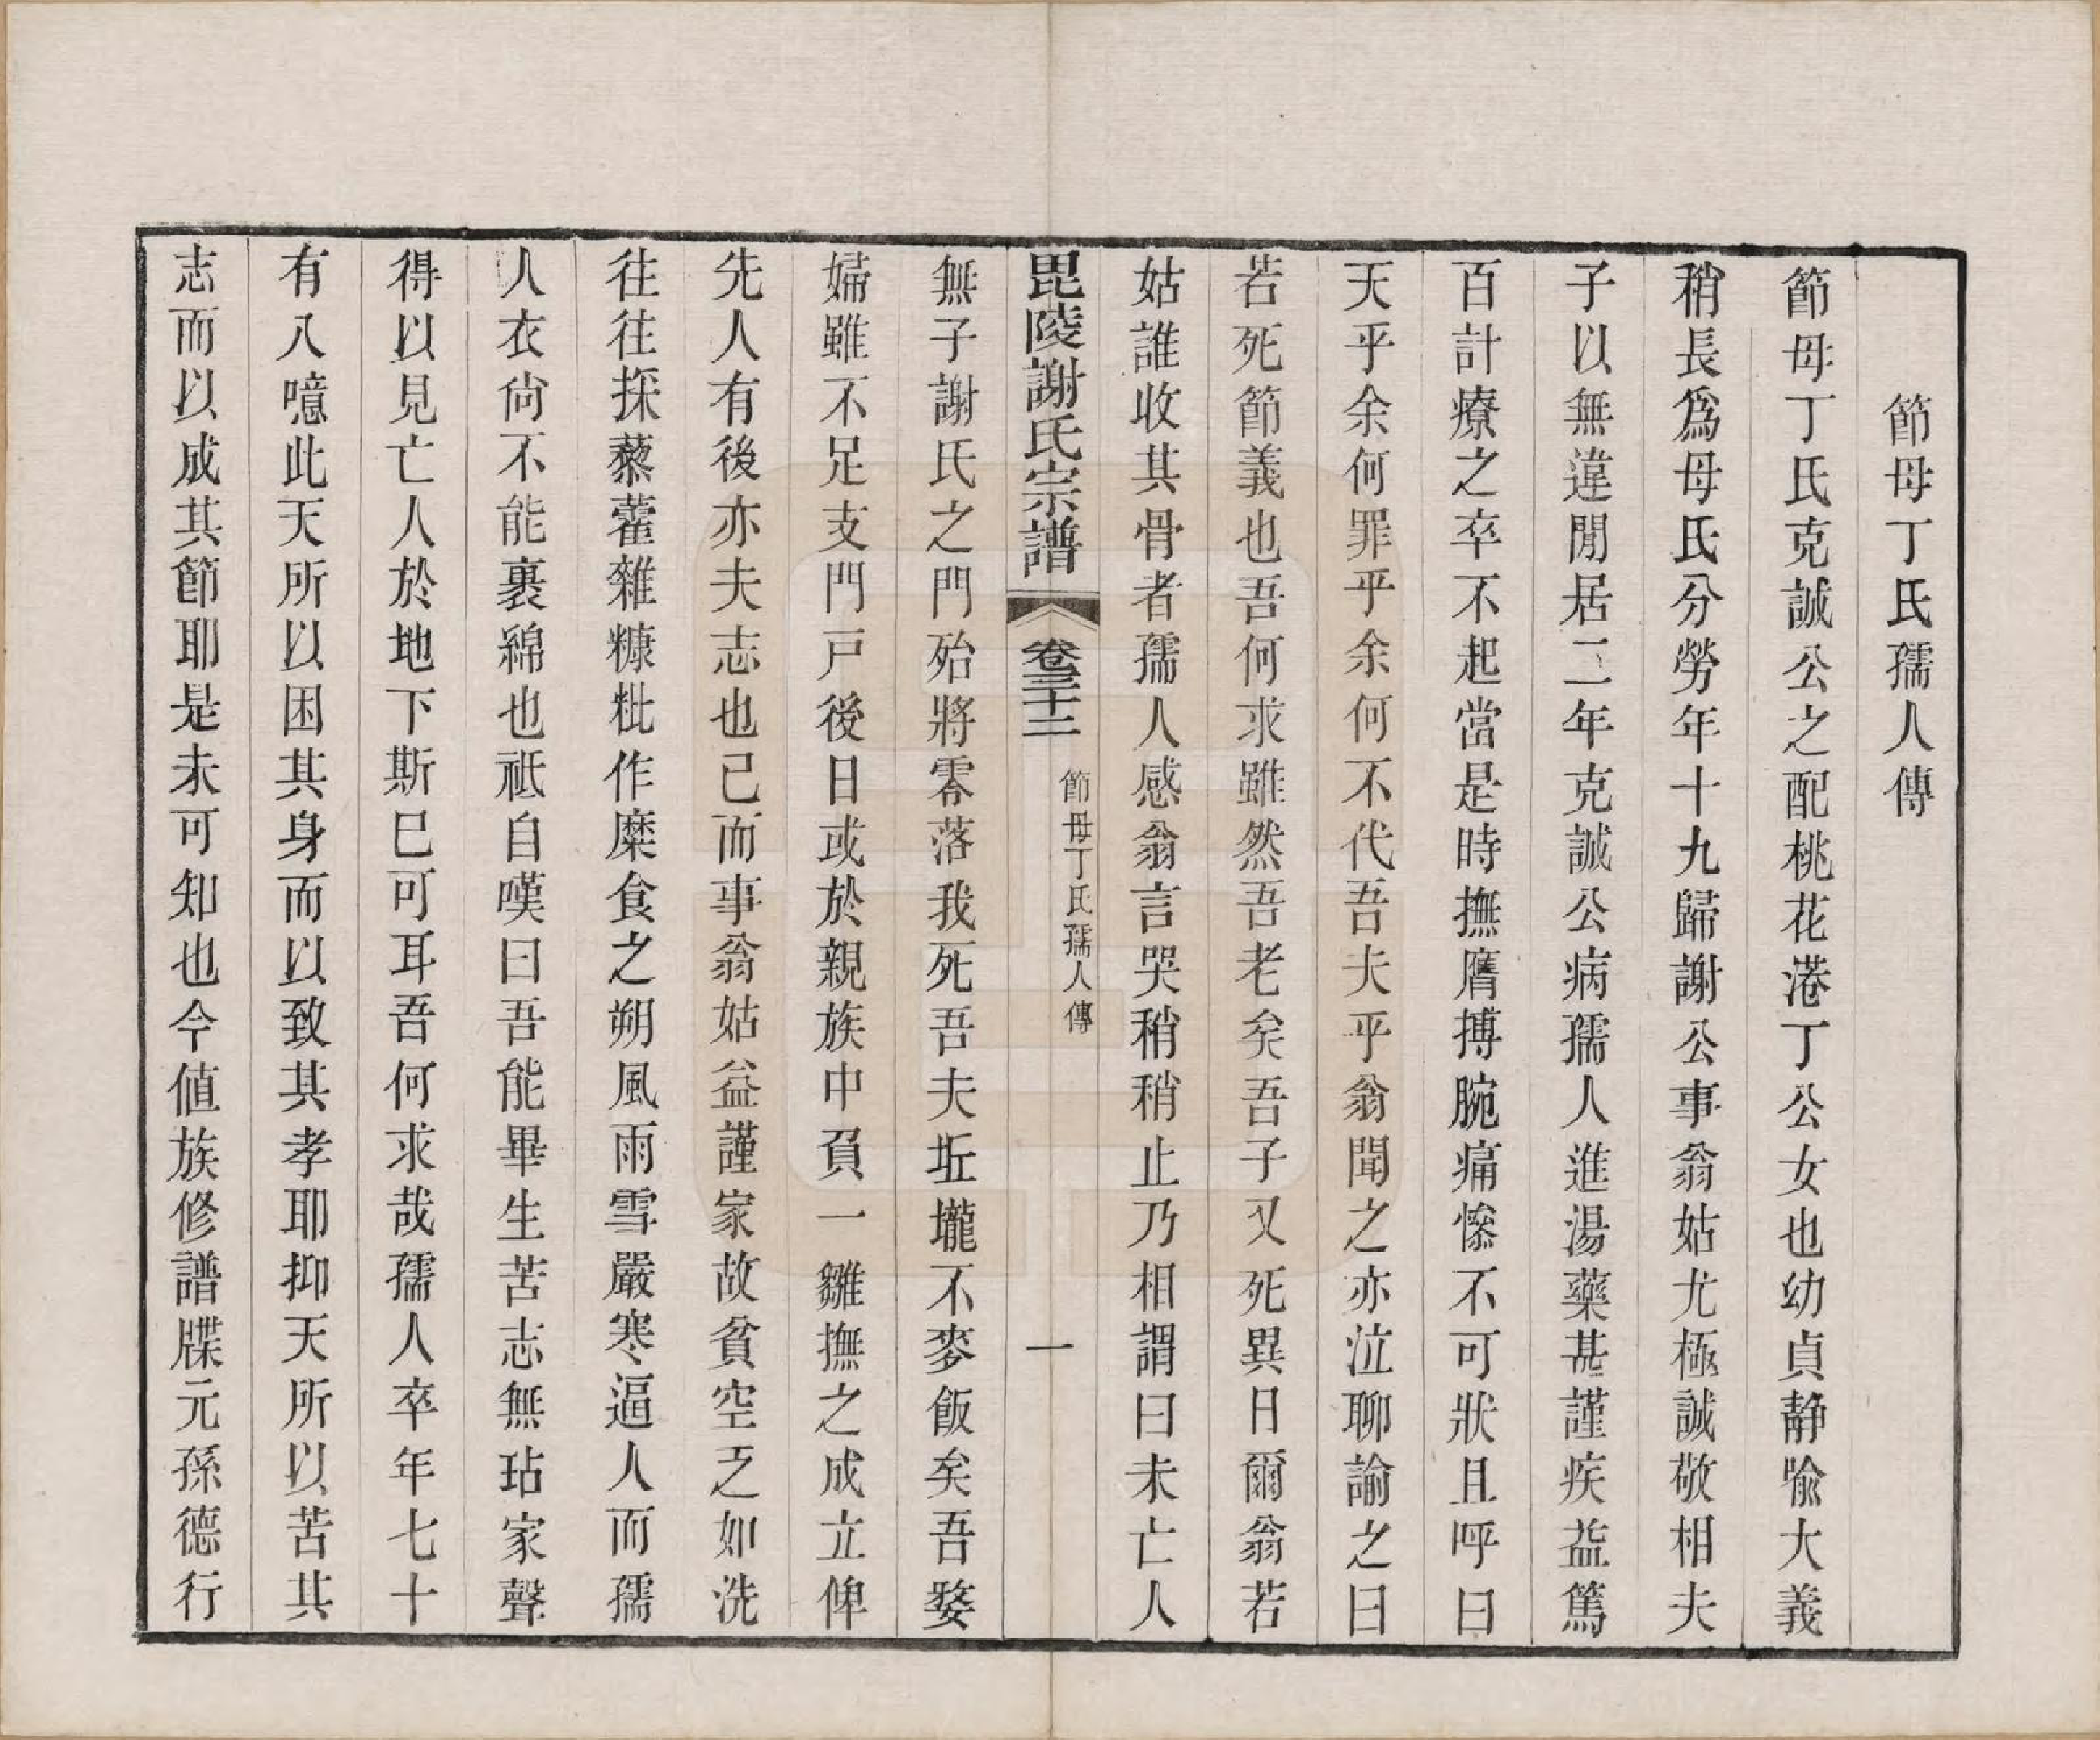 節母丁氏孺人傳
節母丁氏克誠公之配桃花港丁公女也幼貞静喻大義
稍長爲母氏分勞年十九歸謝公事翁姑尤極誠敬相夫
子以無違閒居二年克誠公病孺人進湯藥甚謹疾益篤
百計療之卒不起當是時撫膺搏腕痛慘不可狀且呼曰
天乎余何罪乎余何不代吾夫乎翁聞之亦泣聊諭之曰
若死節義也吾何求雖然吾老矣吾子又死異日爾翁若
姑誰收其骨者孺人感翁言哭稍稍止乃相謂曰未亡人
毘陵謝氏宗譜 卷三十二 節母丁氏孺人傳 一
無子謝氏之門殆將零落我死吾夫坵壠不麥飯矣吾婺
婦雖不足支門戸後日或於親族中負一雛撫之成立俾
先人有後亦夫志也已而事翁姑益謹家故貧空乏如洗
往往採藜藿雜糠粃作糜食之朔風雨雪嚴寒逼人而孺
人衣尙不能裹綿也祗自嘆曰吾能畢生苦志無玷家聲
得以見亡人於地下斯巳可耳吾何求哉孺人卒年七十
有八噫此天所以困其身而以致其孝耶抑天所以苦其
志而以成其節耶是未可知也今値族修譜牒元孫德行